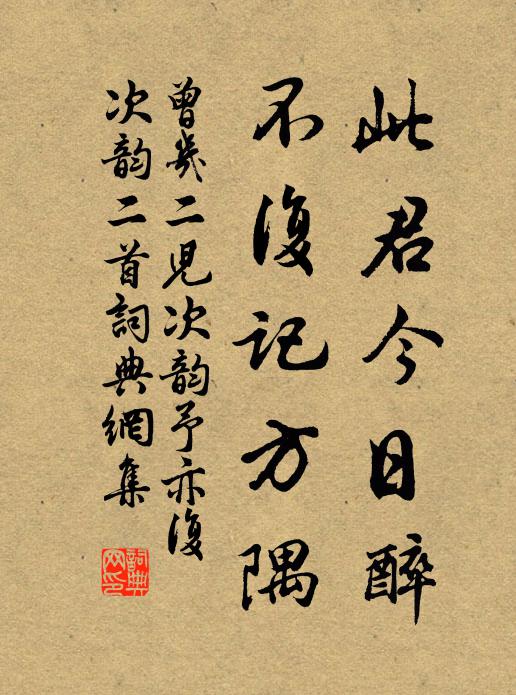 此君今日醉
不復記方隅
曾幾二児次韵予亦復
次韵二首詞典網集
詞典
网印